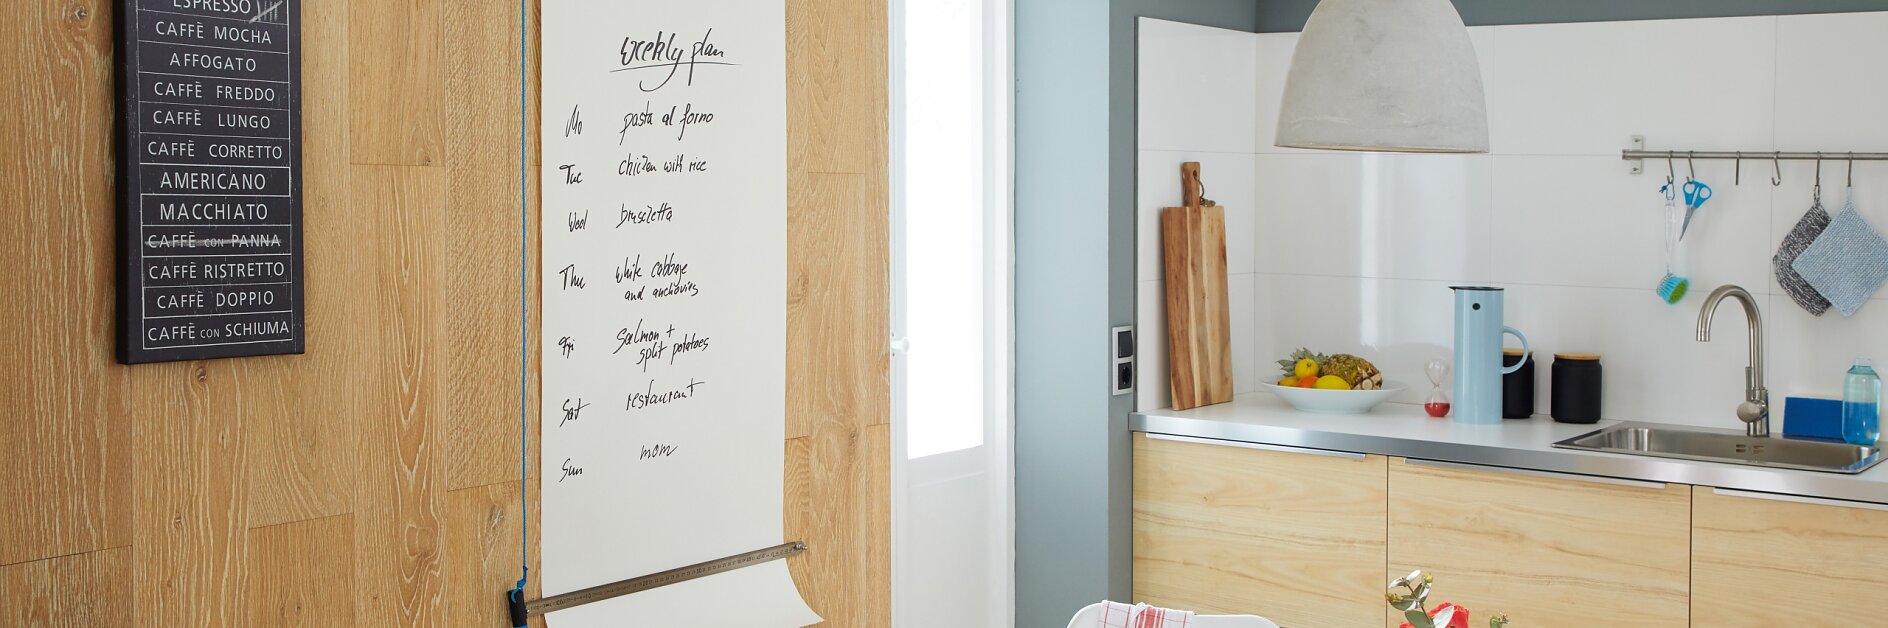 ESPRESSO
CAFFÈ MOCHA
AFFOGATO
CAFFÈ FREDDO
CAFFÈ LUNGO
CAFFÈ CORRETTO
AMERICANO
MACCHIATO
CAFFÈ CON PANNA
CAFFÈ RISTRETTO
CAFFÈ DOPPIO
CAFFÈ CON SCHIUMA
weekly plan
Mo pasta al forno
Tue chicken with rice
Wed brusczetta
Thu white cabbage
and anchovies
Fri Salmon +
split potatoes
Sat restaurant
Sun mom